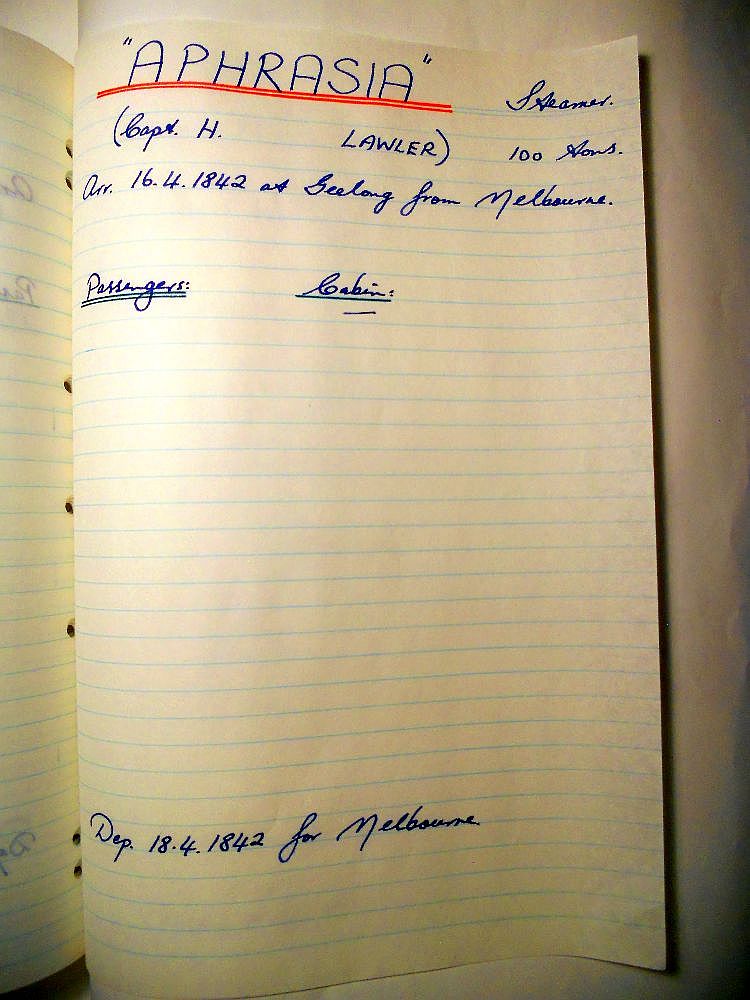 "APHRASIA"
Steamer.
(Capt. H. LAWLER)
100 tons.
Arr. 16.4.1842 at Geelong from Melbourne.
Passengers: Cabin:
Dep. 18.4.1842 for Melbourne